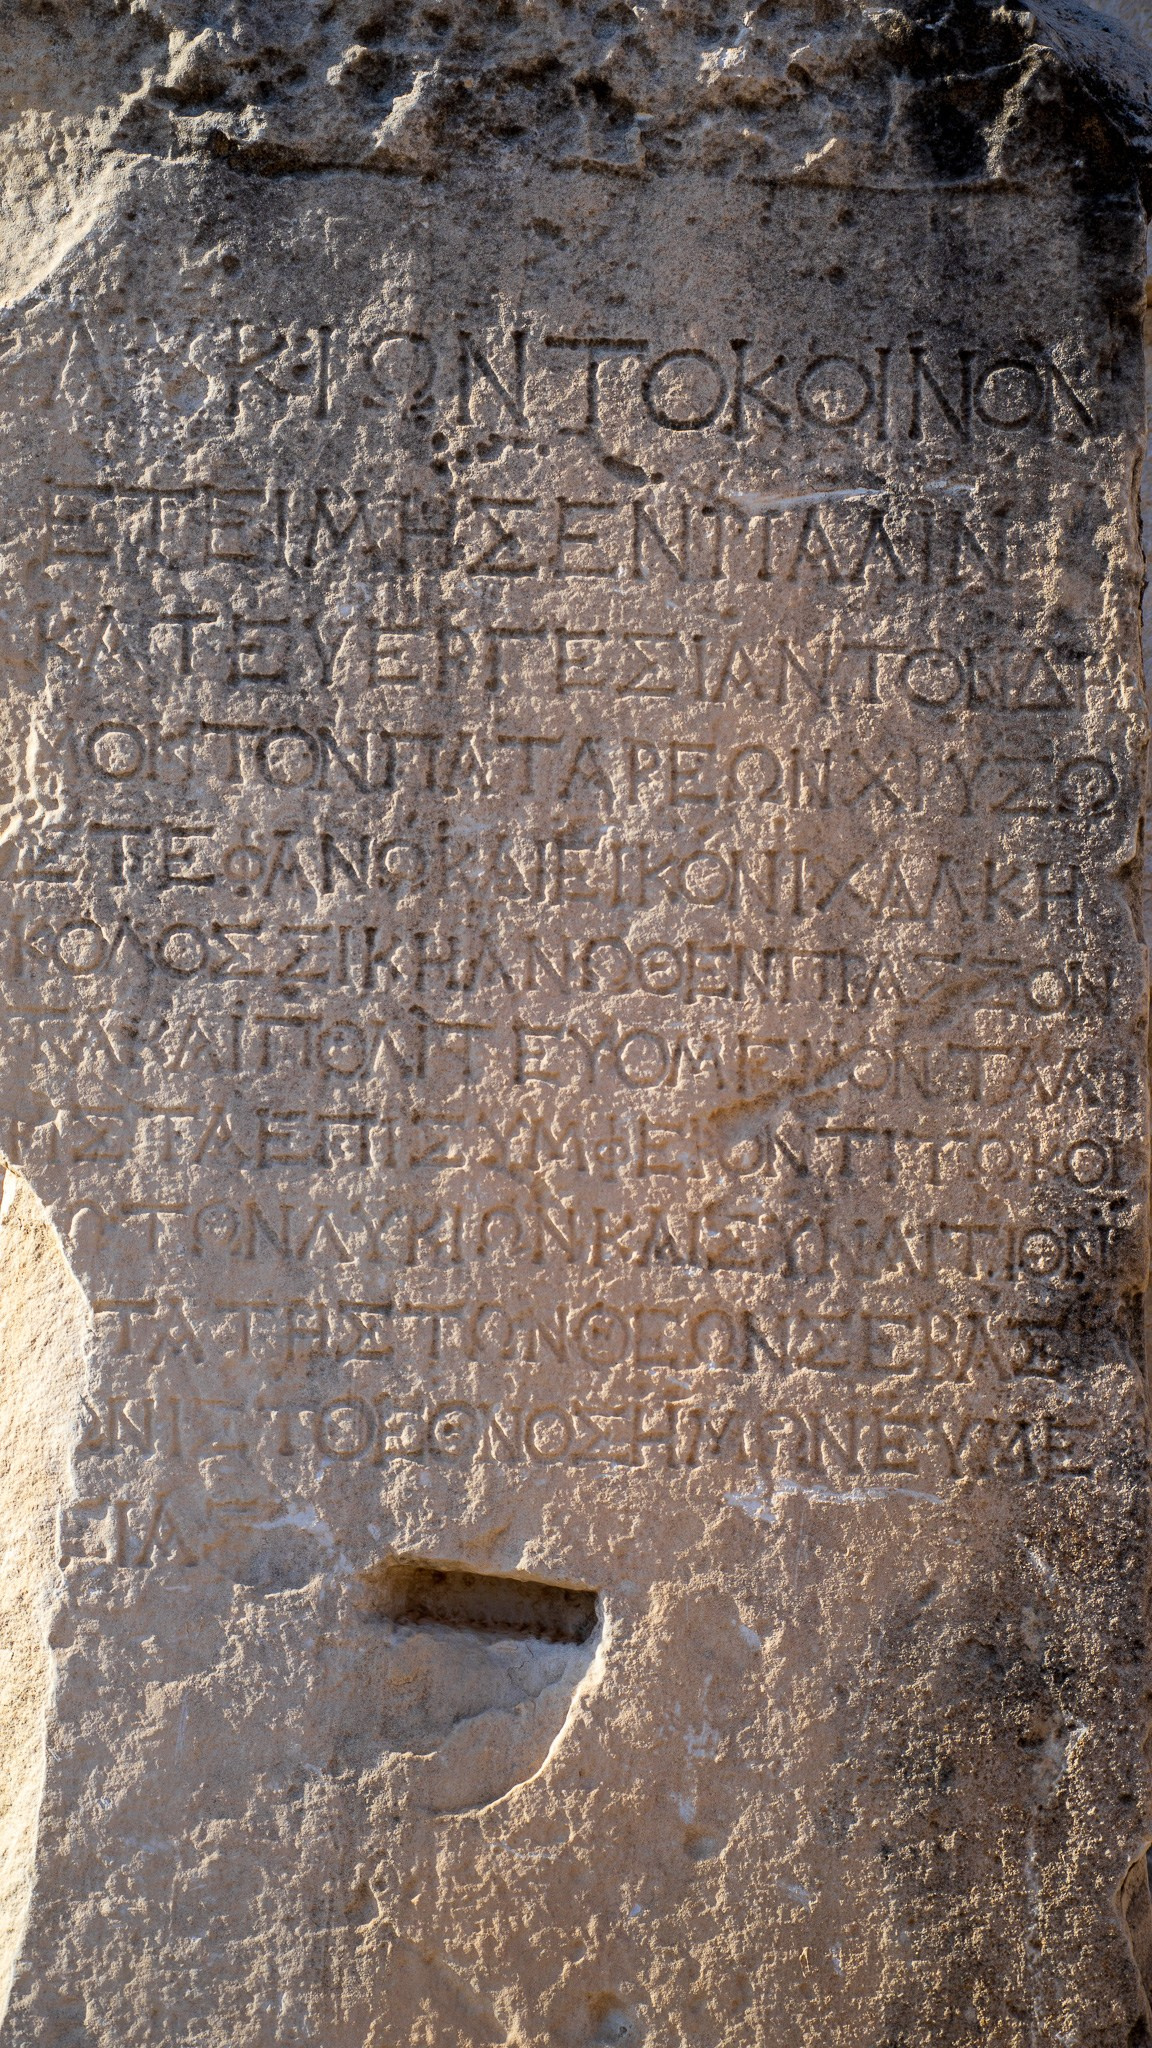 ΛΥΚΙΩΝΤΟΚΟΙΝΟΝ
ΕΤΕΙΜΗΣΕΝΠΑΛΙΝ
ΚΑΤΕΥΕΡΓΕΣΙΑΝΤΟΝΔΗ
ΜΟΝΤΟΝΠΑΤΑΡΕΩΝΧΡΥΣΩ
ΣΤΕΦΑΝΩΚΑΙΕΙΚΟΝΙΧΑΛΚΗ
ΚΟΛΟΣΣΙΚΗΑΝΩΘΕΝΠΡΑΣΣΟΝ
ΤΑΚΑΙΠΟΛΙΤΕΥΟΜΕΝΟΝΤΑΑ
ΗΣΤΑΕΠΙΣΥΜΦΕΡΟΝΤΙΤΩΚΟΙ
ΩΤΩΝΛΥΚΙΩΝΚΑΙΣΥΝΑΙΤΙΟΝ
ΤΑΤΗΣΤΩΝΘΕΩΝΣΕΒΑΣ
ΩΝΙΣΤΟΕΘΝΟΣΗΜΩΝΕΥΜΕ
ΙΑΣ